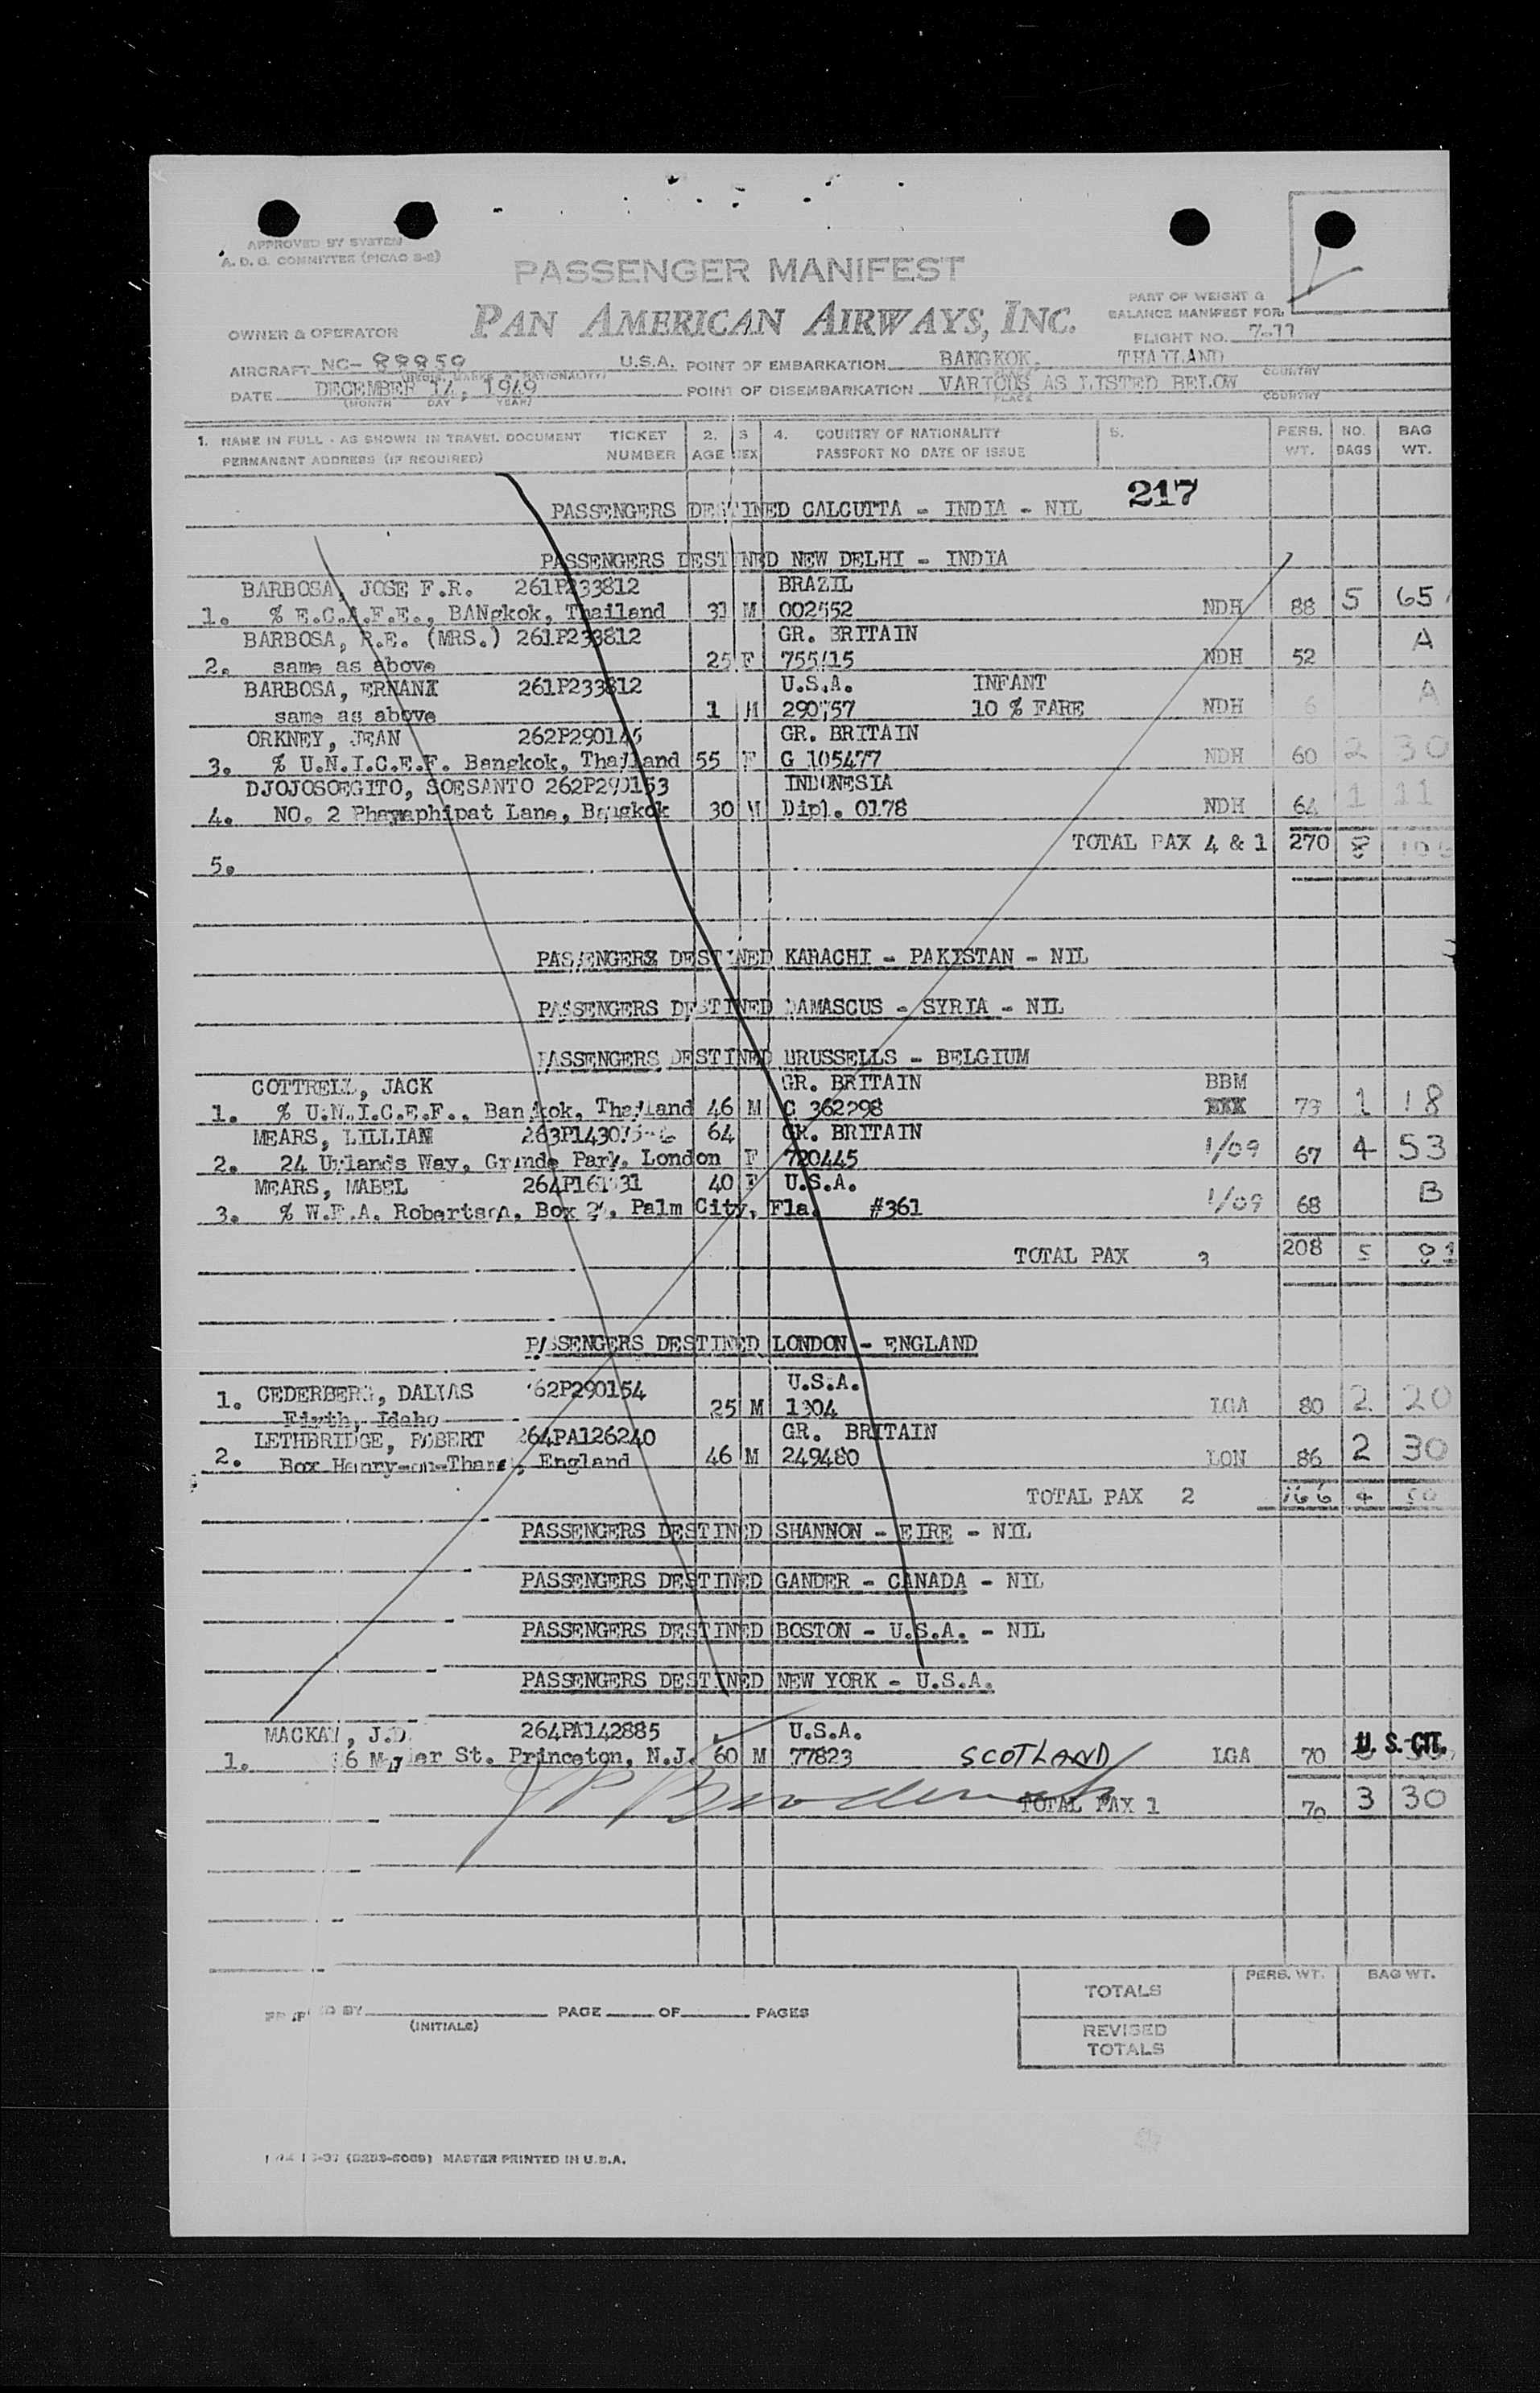 APPROVED BY SYSTEM
A. D. C. COMMITTEE (PICAO S-2)
PASSENGER MANIFEST
PAN AMERICAN AIRWAYS, INC.
PART OF WEIGHT &
BALANCE MANIFEST FOR
OWNER & OPERATOR
FLIGHT NO.
AIRCRAFT NC-88859 U.S.A. POINT OF EMBARKATION BANGKOK, THAILAND
COUNTRY
DATE DECEMBER 14, 1949 POINT OF DISEMBARKATION VARIOUS AS LISTED BELOW
(MONTH DAY YEAR) PLACE COUNTRY
1. NAME IN FULL - AS SHOWN IN TRAVEL DOCUMENT TICKET 2. 3 4. COUNTRY OF NATIONALITY 5. PERS. NO. BAG
PERMANENT ADDRESS (IF REQUIRED) NUMBER AGE SEX PASSPORT NO DATE OF ISSUE WT. BAGS WT.
PASSENGERS DESTINED CALCUTTA - INDIA - NIL 217
PASSENGERS DESTINED NEW DELHI - INDIA
BARBOSA, JOSE F.R. 261P233812 BRAZIL
1. % E.C.A.F.E., BANgkok, Thailand M 002552 NDH 88 5 65
BARBOSA, R.E. (MRS.) 261P233812 GR. BRITAIN A
2. same as above 25 F 755415 NDH 52
BARBOSA, ERNANI 261P233812 U.S.A. INFANT A
same as above 1 M 290757 10 % FARE NDH 6
ORKNEY, JEAN GR. BRITAIN
3. % U.N.I.C.E.F. Bangkok, Thailand 55 F G 105477 NDH 60 2 30
DJOJOSOEGITO, SOESANTO 262P290153 INDONESIA
4. NO. 2 Phayaphipat Lane, Bangkok 30 M Dipl. 0178 NDH 64 1 11
TOTAL PAX 4 & 1 270 8
5.
PASSENGERS DESTINED KARACHI - PAKISTAN - NIL
PASSENGERS DESTINED DAMASCUS - SYRIA - NIL
PASSENGERS DESTINED BRUSSELLS - BELGIUM
COTTRELL, JACK GR. BRITAIN BBM
1. % U.N.I.C.E.F., Bangkok, Thailand 46 M C 362298 73 1 18
MEARS, LILLIAN 64 GR. BRITAIN
2. Way, Park, London F 720445 1/09 67 4 53
MEARS, MABEL 40 F U.S.A. B
3. % W.F.A. Robertson, Box Palm City, Fla. #361 1/09 68
TOTAL PAX 3 208 5
PASSENGERS DESTINED LONDON - ENGLAND
1. CEDERBERG, DALLAS 262P290154 U.S.A.
Firth, Idaho 25 M 1304 LGA 80 2 20
LETHBRIDGE, ROBERT 264PA126240 GR. BRITAIN
2. England 46 M 249480 LON 86 2 30
TOTAL PAX 2 166 4 50
PASSENGERS DESTINED SHANNON - EIRE - NIL
PASSENGERS DESTINED GANDER - CANADA - NIL
PASSENGERS DESTINED BOSTON - U.S.A. - NIL
PASSENGERS DESTINED NEW YORK - U.S.A.
MACKAY, J.D. 264PA142885 U.S.A.
1. St. Princeton, N.J. 60 M 77823 SCOTLAND LGA 70 U. S. CIT.
TOTAL PAX 1 70 3 30
TOTALS PERS. WT. BAG WT.
PREPARED BY PAGE OF PAGES
(INITIALS)
REVISED
TOTALS
MASTER PRINTED IN U.S.A.